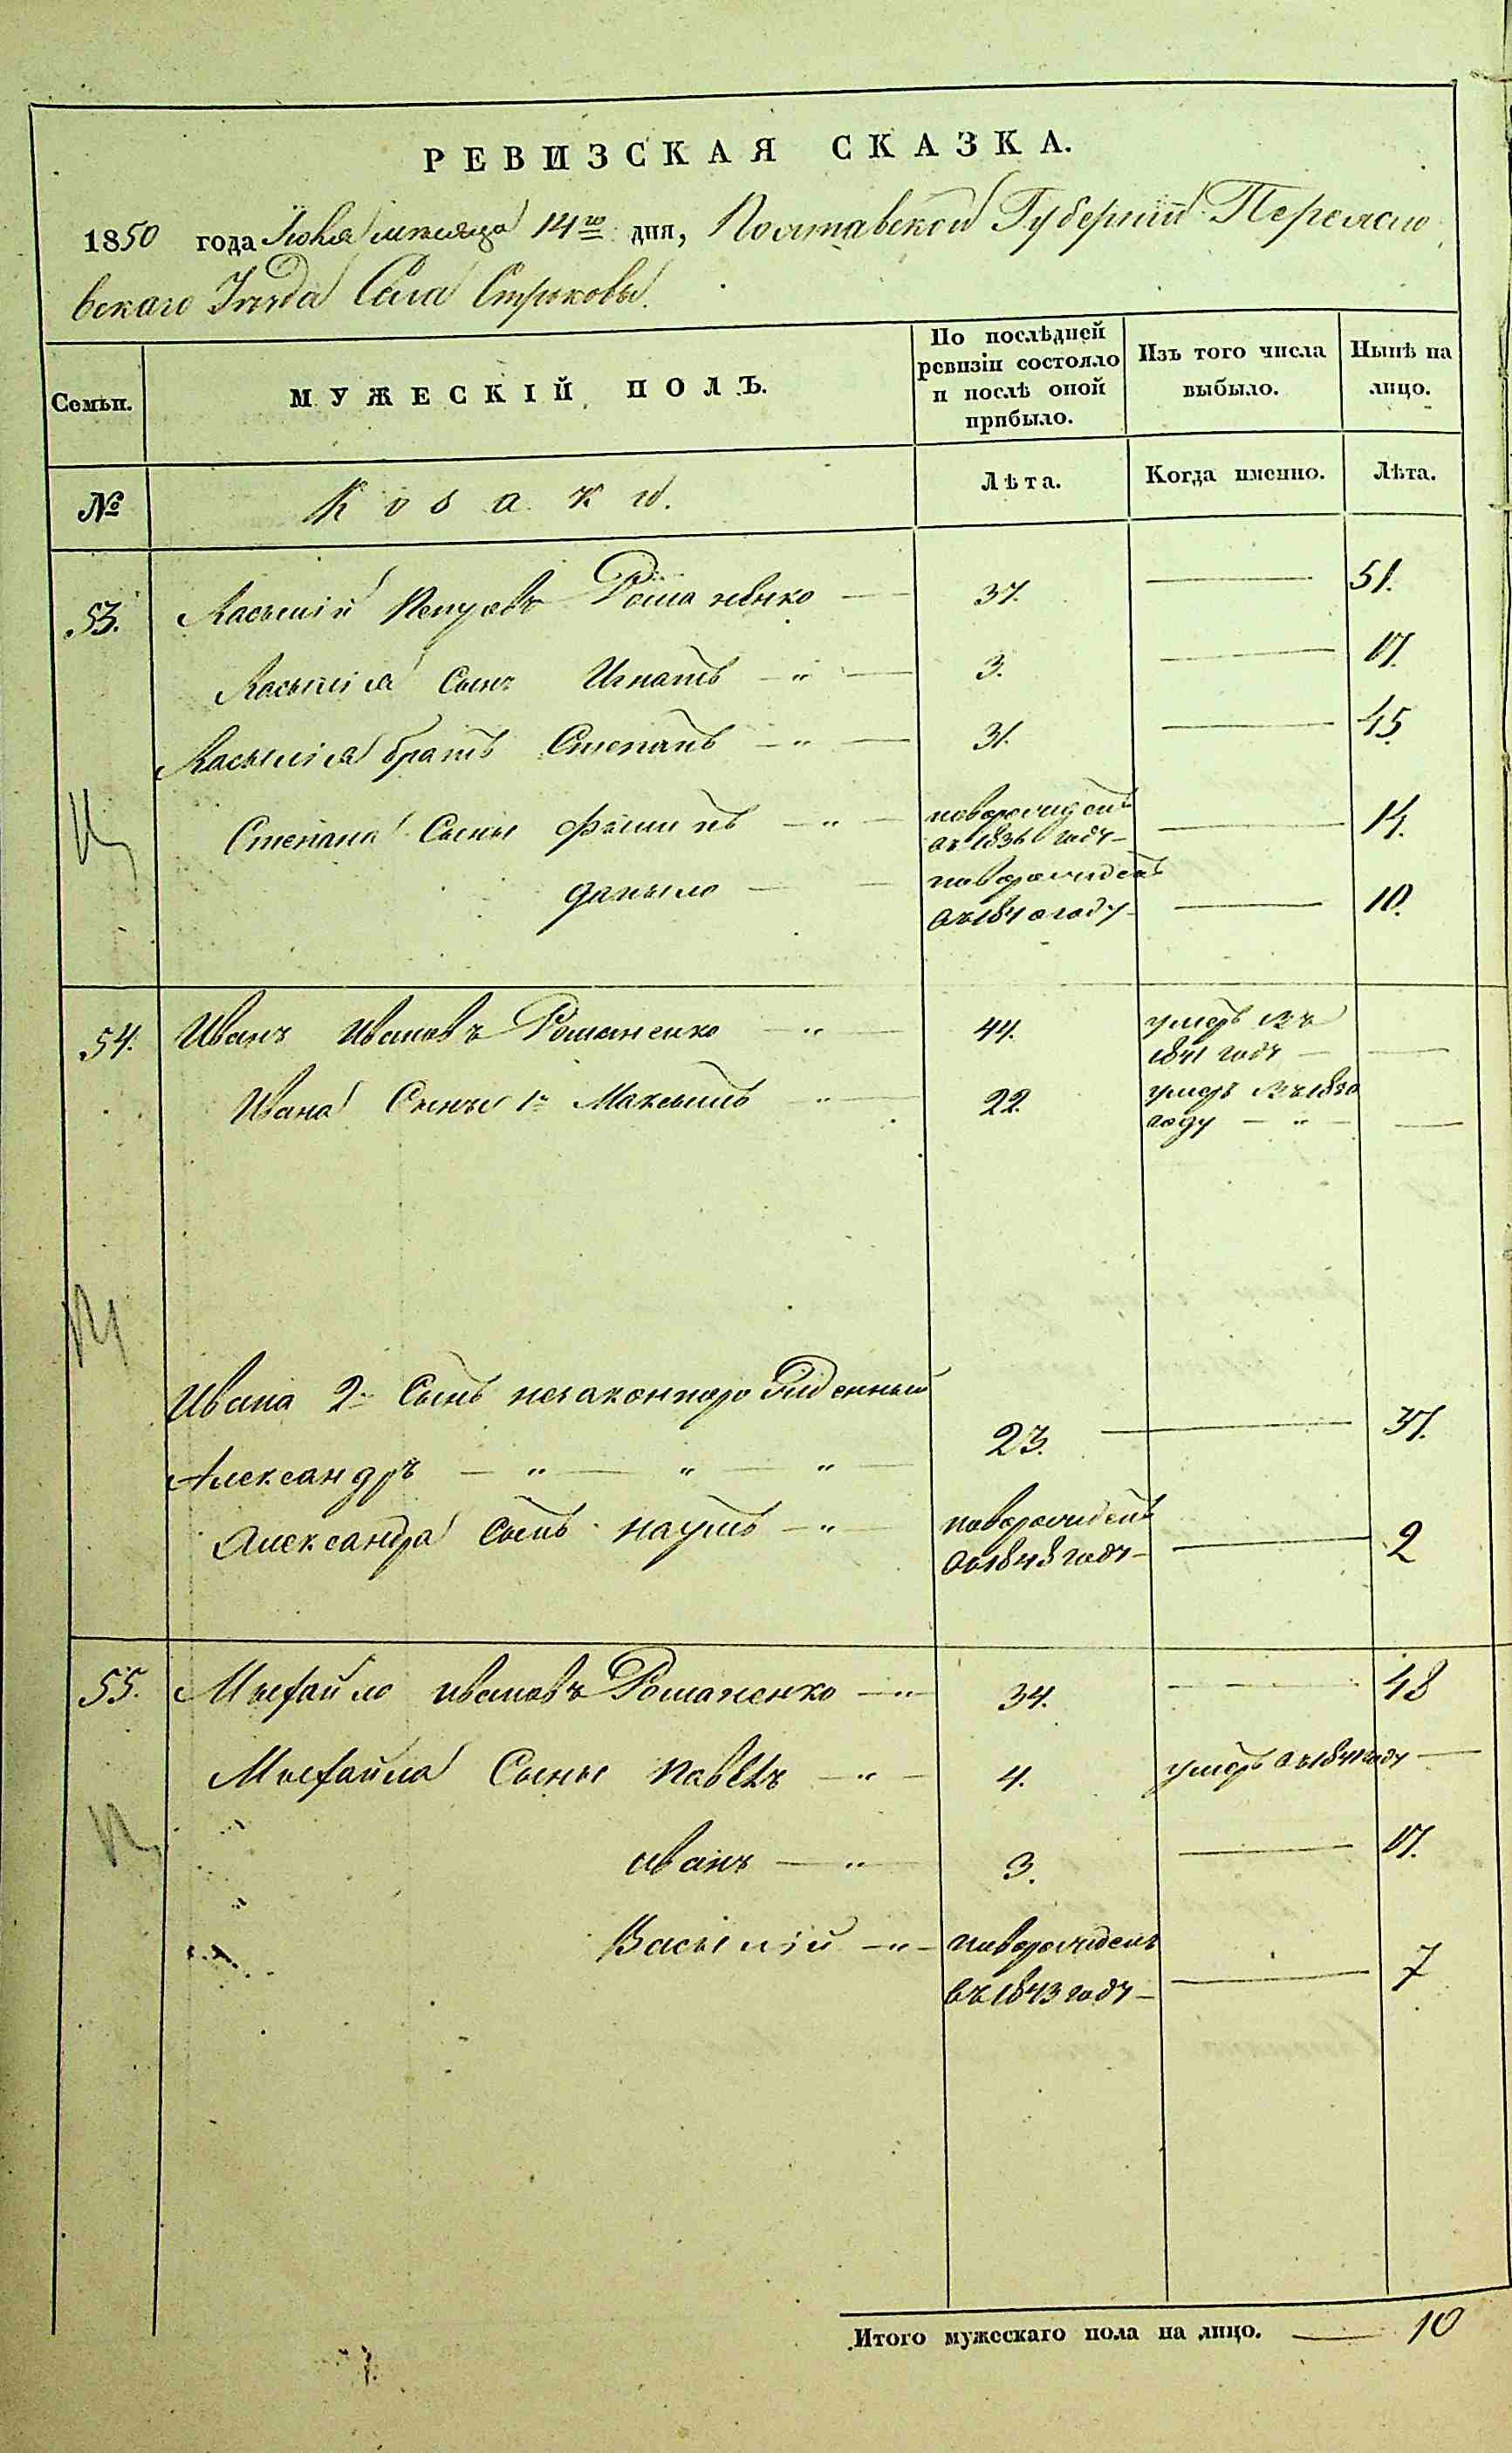 РЕВИЗСКАЯ СКАЗКА.
1850 года Іюля мѣсяца 14го дня, Полтавской Губерніи Переясло
вскаго Уезда Села Строковы.
Семьи.
МУЖЕСКІЙ ПОЛЪ.
По послѣдней ревизіи состояло и послѣ оной прибыло.
Изъ того числа выбыло.
Нынѣ на лицо.
№
Козаки.
Лѣта.
Когда именно.
Лѣта.
53. Василій Романенко — 37. — 51.
Василія Сынъ Игнатъ — " — 3. — 17.
Василія братъ Степанъ — " — 31. — 45
Степана Сыны Филипъ — " — новорожденъ
въ 1836 году — — 14.
Даныло — новорожденъ
въ 1840 году — — 10.
54. Иванъ Ивановъ Романенко — " — 44. умеръ въ
1841 году — —
Ивана Сыны 1й Максымъ " — 22. умеръ въ 1850
году — " — —
Ивана 2й Сынъ незаконнорожденный
Александръ — " — " — " — 23. — 37.
Александра Сынъ Наумъ — " — новорожденъ
въ 1848 году — — 2
55. Мыхайло Ивановъ Романенко — " 34. — 48
Мыхайла Сыны Павелъ — " — 4. умеръ въ 1841 году —
" Иванъ — " — 3. — 17.
" Васылій — " — новорожденъ
въ 1843 году — — 7
Итого мужескаго пола на лицо. — 10